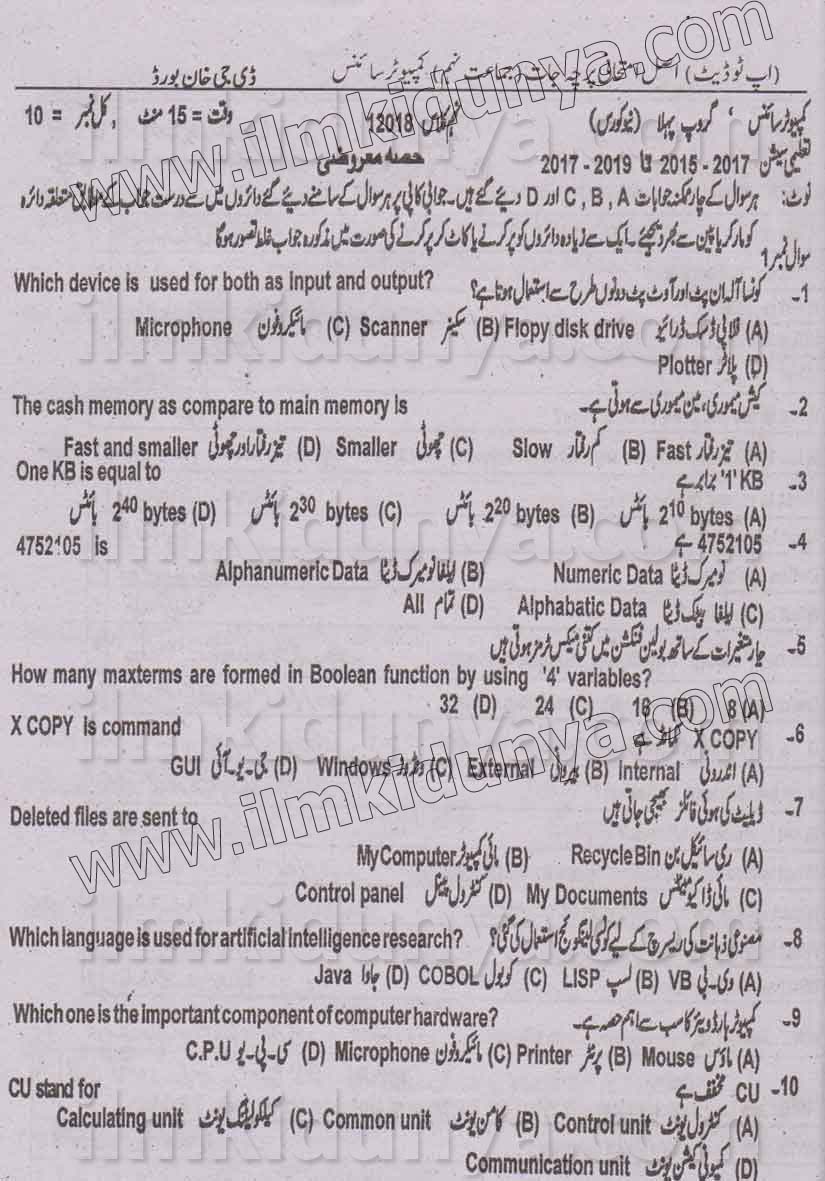 (اپ ٹو ڈیٹ) اصل امتحانی پرچہ جات (جماعت نہم) کمپیوٹر سائنس ڈی جی خان بورڈ
کمپیوٹر سائنس، گروپ پہلا (نیو کورس) نہم کلاس 12018 وقت = 15 منٹ ، کل نمبر = 10
تعلیمی سیشن 2017 - 2015 تا 2019 - 2017 حصہ معروضی
نوٹ: ہر سوال کے چار ممکنہ جوابات C , B , A اور D دیئے گئے ہیں۔ جوابی کاپی پر ہر سوال کے سامنے دیئے گئے دائروں میں سے درست جواب کے مطابق متعلقہ دائرہ
کو مارکر یا پین سے بھر دیجئے۔ ایک سے زیادہ دائروں کو پر کرنے یا کاٹ کر پر کرنے کی صورت میں مذکورہ جواب غلط تصور ہوگا
سوال نمبر 1
1- کونسا آلہ ان پٹ اور آوٹ پٹ دونوں طرح سے استعمال ہوتا ہے؟ Which device is used for both as input and output?
(A) فلاپی ڈسک ڈرائیو Flopy disk drive (B) سکینر Scanner (C) مائیکروفون Microphone
(D) پلاٹر Plotter
2- کیش میموری، مین میموری سے ہوتی ہے۔ The cash memory as compare to main memory is
(A) تیز رفتار Fast (B) کم رفتار Slow (C) چھوٹی Smaller (D) تیز رفتار اور چھوٹی Fast and smaller
3- '1' KB برابر ہے One KB is equal to
(A) 2¹⁰ bytes بائٹس (B) 2²⁰ bytes بائٹس (C) 2³⁰ bytes بائٹس (D) 2⁴⁰ bytes بائٹس
4- 4752105 ہے 4752105 is
(A) نومیرک ڈیٹا Numeric Data (B) ایلفا نومیرک ڈیٹا Alphanumeric Data
(C) ایلفا بیٹک ڈیٹا Alphabatic Data (D) تمام All
5- چار متغیرات کے ساتھ بولین فنکشن میں کتنی میکس ٹرمز ہوتی ہیں
How many maxterms are formed in Boolean function by using '4' variables?
(A) 8 (B) 16 (C) 24 (D) 32
6- X COPY کمانڈ ہے X COPY is command
(A) اندرونی Internal (B) بیرونی External (C) ونڈوز Windows (D) جی۔یو۔آئی GUI
7- ڈیلیٹ کی ہوئی فائلز بھیجی جاتی ہیں Deleted files are sent to
(A) ری سائیکل بن Recycle Bin (B) مائی کمپیوٹر My Computer
(C) مائی ڈاکیومینٹس My Documents (D) کنٹرول پینل Control panel
8- مصنوعی ذہانت کی ریسرچ کے لیے کونسی لینگوئج استعمال کی گئی؟ Which language is used for artificial intelligence research?
(A) وی۔بی VB (B) لسپ LISP (C) کوبول COBOL (D) جاوا Java
9- کمپیوٹر ہارڈویئر کا سب سے اہم حصہ ہے۔ Which one is the important component of computer hardware?
(A) ماؤس Mouse (B) پرنٹر Printer (C) مائیکروفون Microphone (D) سی۔پی۔یو C.P.U
10- CU مخفف ہے CU stand for
(A) کنٹرول یونٹ Control unit (B) کامن یونٹ Common unit (C) کیلکولیٹنگ یونٹ Calculating unit
(D) کمیونی کیشن یونٹ Communication unit
www.ilmkidunya.com
www.ilmkidunya.com
ilmkidunya.com
ilmkidunya.com
ilmkidunya.com
ilmkidunya.com
ilmkidunya.com
ilmkidunya.com